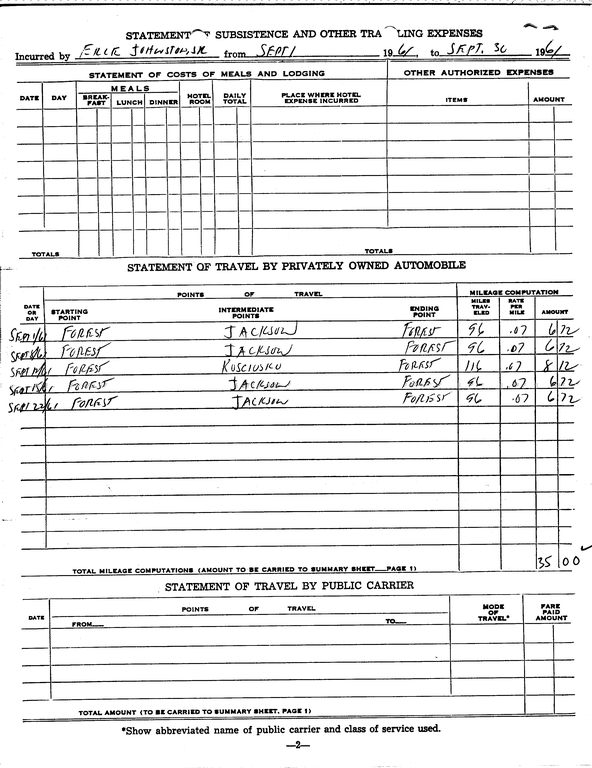 STATEMENT SUBSISTENCE AND OTHER TRA LING EXPENSES
Incurred by ERLE JOHNSTON, JR from SEPT 1 1961, to SEPT. 30 1961
STATEMENT OF COSTS OF MEALS AND LODGING OTHER AUTHORIZED EXPENSES
DATE DAY MEALS BREAK-FAST LUNCH DINNER HOTEL ROOM DAILY TOTAL PLACE WHERE HOTEL EXPENSE INCURRED ITEMS AMOUNT
TOTALS TOTALS
STATEMENT OF TRAVEL BY PRIVATELY OWNED AUTOMOBILE
POINTS OF TRAVEL MILEAGE COMPUTATION
DATE OR DAY STARTING POINT INTERMEDIATE POINTS ENDING POINT MILES TRAV-ELED RATE PER MILE AMOUNT
SEPT 1/61 FOREST JACKSON FOREST 96 .07 6 72
SEPT 8/61 FOREST JACKSON FOREST 96 .07 6 72
SEPT /61 FOREST KOSCIUSKO FOREST 116 .07 8 12
SEPT 15/61 FOREST JACKSON FOREST 96 .07 6 72
SEPT 22/61 FOREST JACKSON FOREST 96 .07 6 72
TOTAL MILEAGE COMPUTATIONS (AMOUNT TO BE CARRIED TO SUMMARY SHEET PAGE 1) 35 00
STATEMENT OF TRAVEL BY PUBLIC CARRIER
DATE POINTS OF TRAVEL MODE OF TRAVEL* FARE PAID AMOUNT
FROM TO
TOTAL AMOUNT (TO BE CARRIED TO SUMMARY SHEET. PAGE 1)
*Show abbreviated name of public carrier and class of service used.
—2—